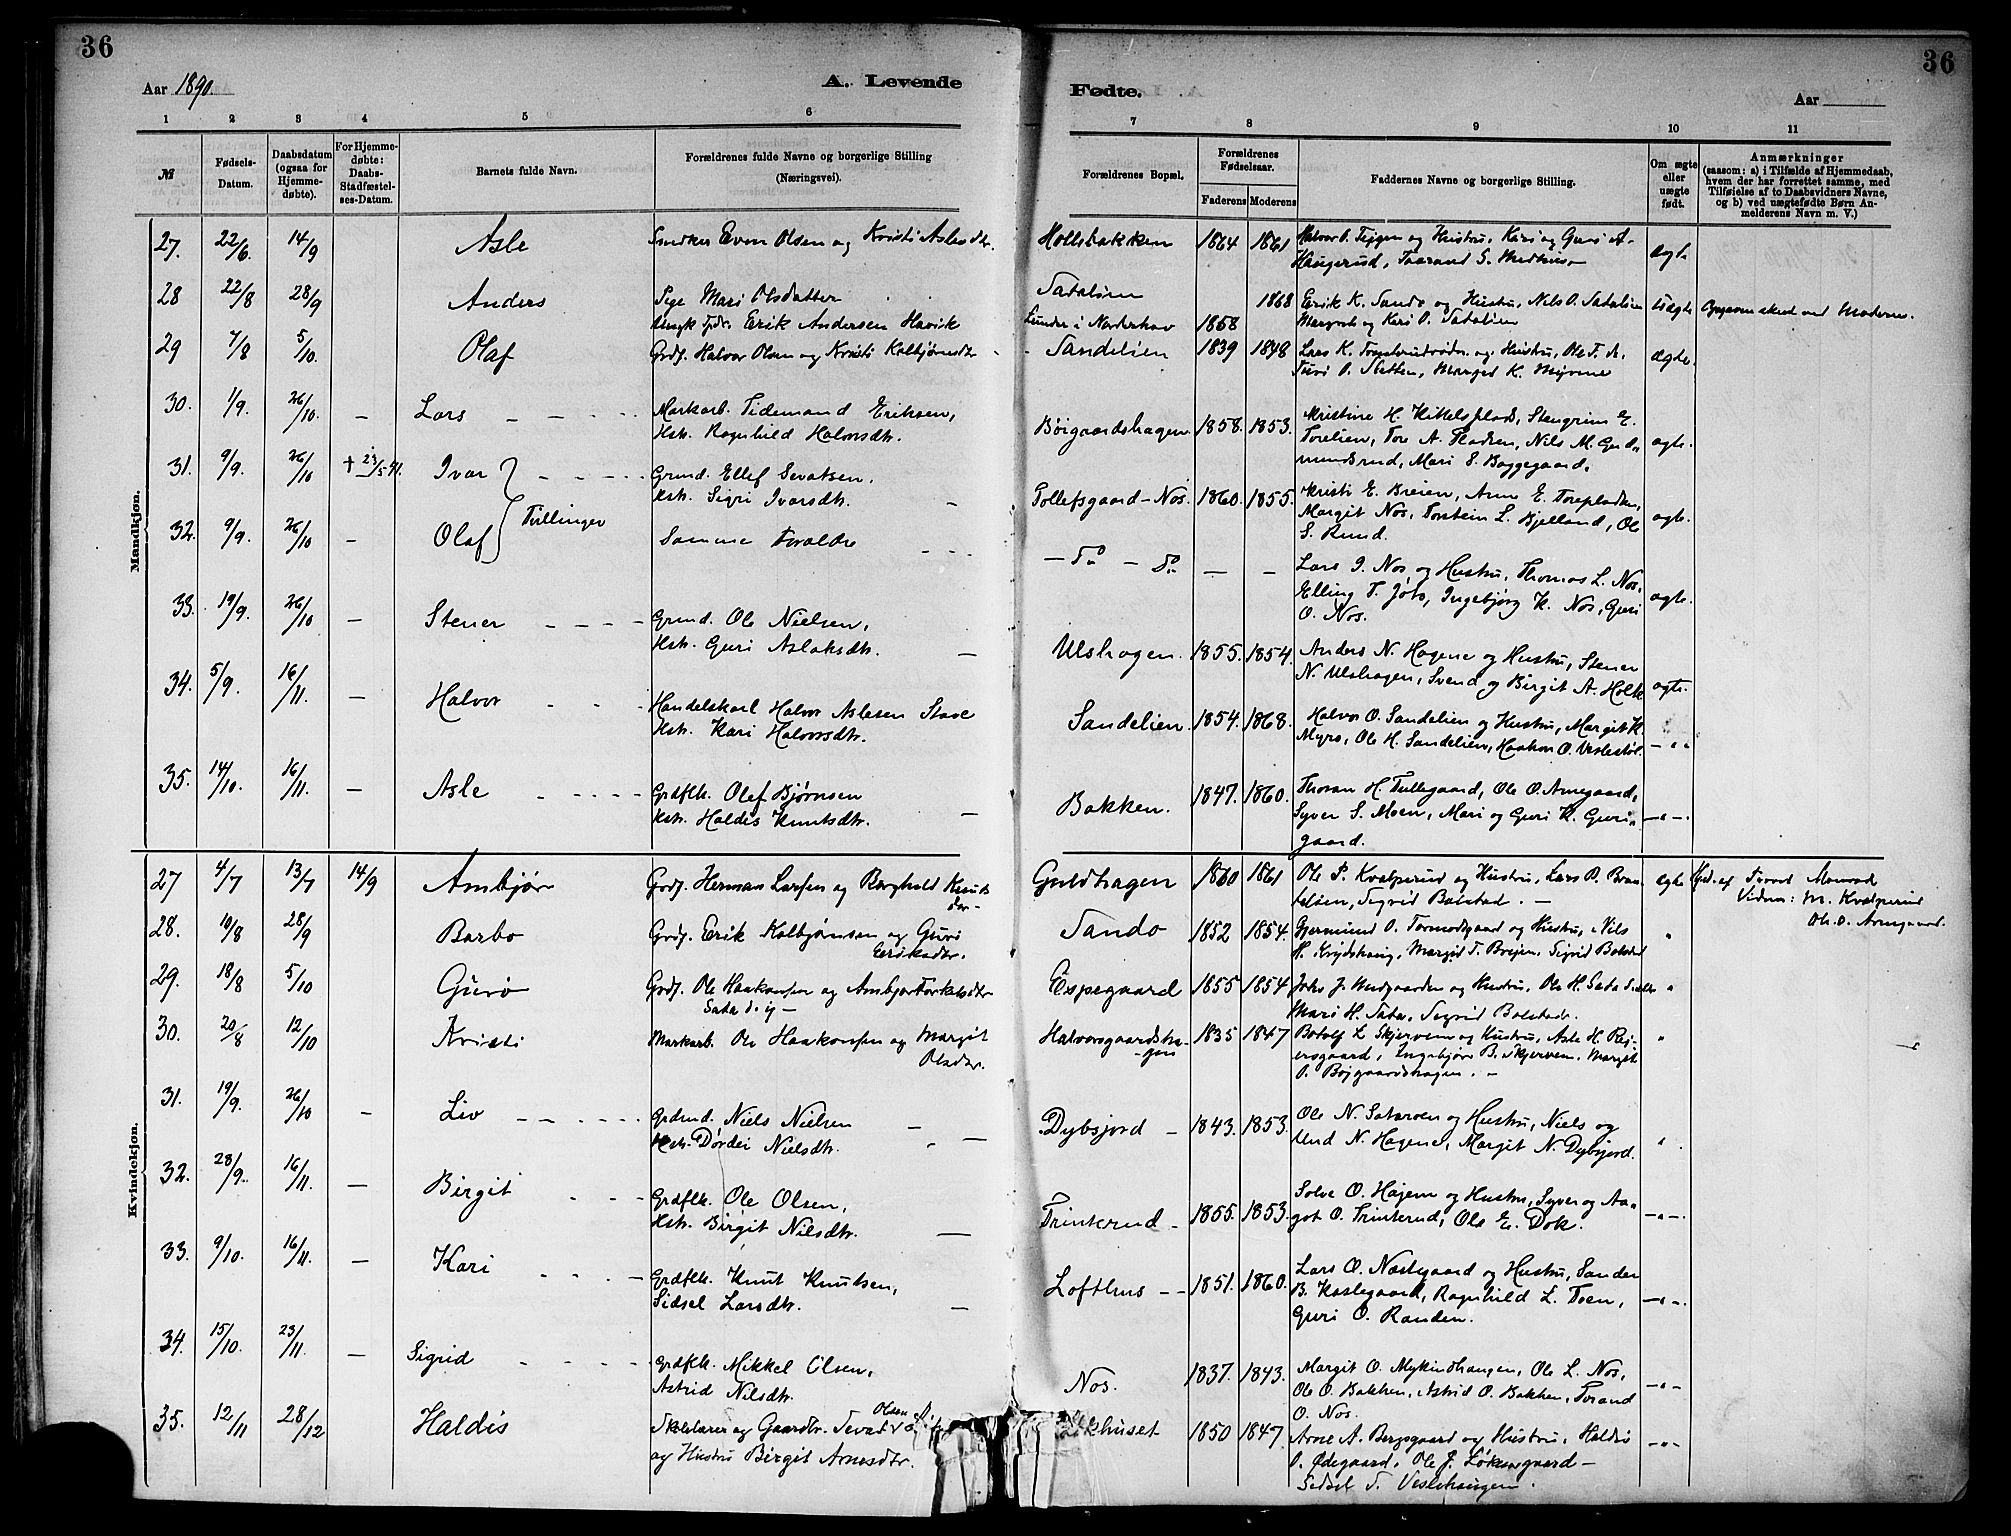 36
Aar 1890.
A. Levende
1 2 3 4 5 6
№
Fødsels-Datum.
Daabsdatum (ogsaa for Hjemmedøbte).
For Hjemmedøbte: Daabs-Stadfæstelses-Datum.
Barnets fulde Navn.
Forældrenes fulde Navne og borgerlige Stilling (Næringsvei).
Mandkjøn.
27. 22/6. 14/9 Asle Smedker Even Olsen og Kristi Aslesdtr.
28 22/8 28/9 Anders Pige Mari Olsdatter
Erik Andersen Havik
29 7/8 5/10. Olaf Grdf. Halvor Olsen og Kristi Kolbjørnsdtr
30. 1/9. 26/10. — Lars Markarb. Tidemand Eriksen,
Hstr. Ragnhild Halvorsdtr.
31. 9/9. 26/10 Ivar Grmd. Ellef Sevatsen,
Hstr. Sigri Ivarsdtr. —
Tvillinger
32. 9/9. 26/10 — Olaf Samme Forældre
33. 19/9. 26/10 — Stener Grmd. Ole Nielsen,
Hstr. Guri Aslaksdtr. —
34. 5/9. 16/11. — Halvor Handelskarl Halvor Aslesen Stave
Hstr. Kari Halvorsdtr.
35. 14/10. 16/11. — Asle Grdflk. Olef Bjørnsen
Hstr. Haldis Knutsdtr. —
Kvindekjøn.
27 4/7 13/7 14/9 Ambjør Grdf. Herman Larsen og Borghild Knuts
dtr—
28. 10/8 28/9 Barbo Grdf. Erik Kolbjørnsen og Guri
Eriksdtr.
29. 18/8 5/10 Guro Grdf. Ole Haakonsen og Ambjør Torkelsdtr
30. 20/8 12/10 Kristi Markarb. Ole Haakonsen og Margit
Olsdtr.
31. 19/9. 26/10 — Liv Grdmd. Niels Nielsen —
Hstr. Dørdei Nielsdtr. —
32. 28/9. 16/11. — Birgit Grdflk. Ole Olsen,
Hstr. Birgit Nilsdtr. —
33. 9/10. 16/11. — Kari Grdflk. Knut Knutsen,
Sidsel Larsdtr. —
34. 15/10. 23/11. — Sigrid Grdflk. Mikkel Olsen,
Astrid Nilsdtr.
35. 12/11 28/12 Haldis Skolelærer og Gaardbr. Sevat Olsen
og Hustru Birgit Arnesdtr.
36
Fødte.
Aar
7 8 9 10 11
Forældrenes Bopæl.
Forældrenes Fødselsaar.
Faderens Moderens
Faddernes Navne og borgerlige Stilling.
Om ægte eller uægte født.
Anmærkninger
(saasom: a) i Tilfælde af Hjemmedaab,
hvem der har forrettet samme, med
Tilføielse af to Daabsvidners Navne,
og b) ved uægtefødte Børn Anmelderens Navn m. V.)
Hollsbakken 1864 1861 Hustru, Kari og Guri A.
Haugerud, Taarand S. Medhus— ægte
Sataliem 1868 Erik K. Sando og Hustru, Nils O. Satalien uægte Moderen.
Lunder i Norderhov 1868 Margreth og Kari O. Satalien
Sandelien 1839 1848 Lars K. og Hustru, Ole T. A. ægte.
Turi O. Sletten, Marget K. Myrene
Børgaardshagen. 1858. 1853. Kristine H. Kittelsplads, Stengrim E.
Torelien, Tore A. Pladsen, Nils M. Gud-
mundsrud, Mari S. Baggegaard. ægte.
Tollefsgaard-Nos. 1860. 1855. Kristi E. Breien, Arne E. Torepladsen,
Margit Nos, Torstein L. Bjelland, Ole
S. Ruud. ægte.
— Do — Do — — Lars I. Nos og Hustru, Thomas L. Nos,
Elling T. Joto, Ingebjørg K. Nos, Guri
O. Nos. ægte.
Ulshagen. 1855. 1854. Anders N. Hagene og Hustru, Stener
N. Ulshagen, Svend og Birgit A. Holte ægte.
Sandelien. 1854. 1868. Halvor O. Sandelien og Hustru, Margit K.
Myro, Ole H. Sandelien, Haakon O. Veslestøl. — „ —
Bakken. 1847. 1860. Thoran H. Tullegaard, Ole O. Arnegaard,
Syver S. Moen, Mari og Guri K. Guri-
gaard. — „ —
Guldhagen 1860 1861 Ole P. Kvalperud og Hustru, Lars P. Bran
Sigrid Bolstad. — ægte Hjd. af Tovod Monrad
Vidner: M. Kvelprud
Ole O. Arnegaard.
Sando 1852 1854. Gjermund O. Tormodsgaard og Hustru, Nils
H. Margit T. Breien, Sigrid Bolstad „
Espegaard 1855 1854 John J. og Hustru, Ole H. Sata „
Mari H. Sata, Sigrid Bolstad.
Halvorsgaardsha-
gen 1835 1847 Botolf L. Skjerven og Hustru, Asle H. Rej-
ersgaard, Ingebjør B. Skjerven, Margit
O. Bøjgaardshagen. — „
Dybsjord — 1843. 1853. Ole N. Sataroen og Hustru, Niels og
Und N. Hagene, Margit N. Dybsjord. „
Trinterud — 1855. 1853. Solve O. Hagen og Hustru, Syver og Aa-
got O. Trinterud, Ole E. Dok. — „ —
Lofthus — 1851. 1860. Lars O. Næstegaard og Hustru, Sander
B. Kaslegaard, Ragnhild L. Toen,
Guri O. Randen. — „ —
Nos. 1837. 1843. Margit O. Myking, Ole L. Nos,
Ole O. Bakken, Astrid O. Bakken, Torand
O. Nos. — „ —
1850 1847. Arne A. Bergsgaard og Hustru, Haldis
O. Ødegaard, Ole J. Løkensgaard —
Sidsel T. Veslehaugen. — „ —